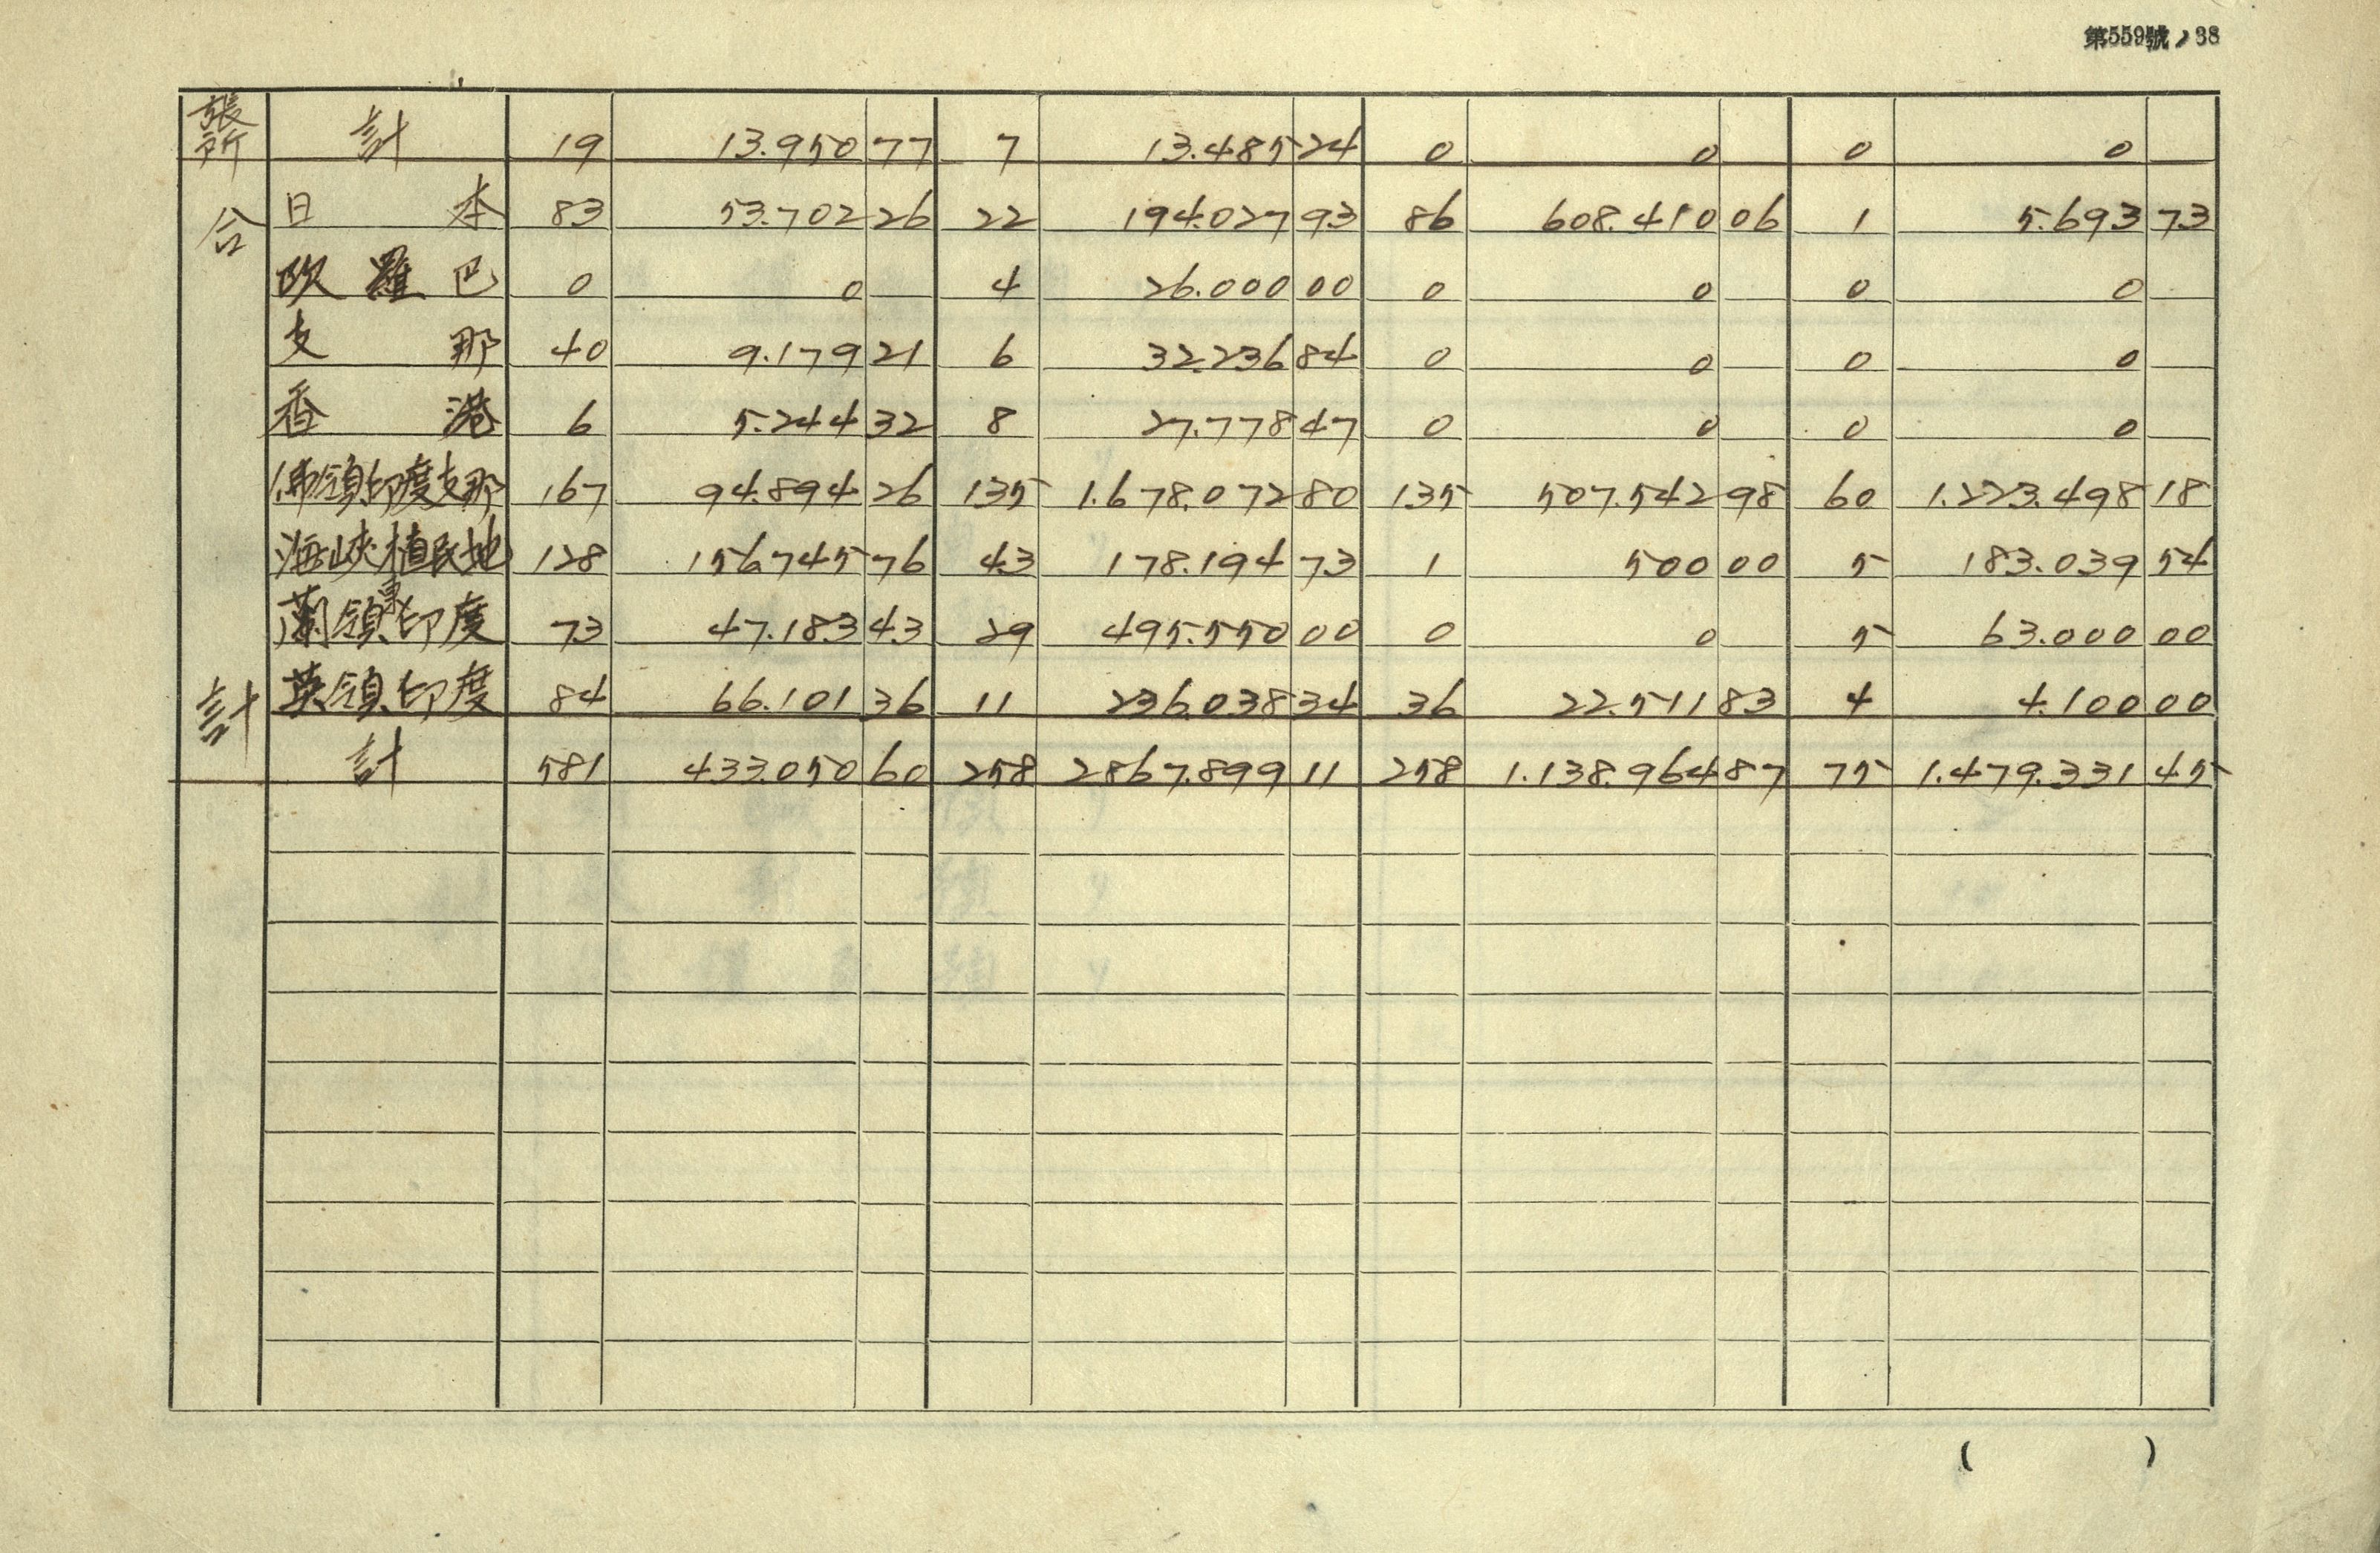 第559號ノ38
張所 計 19 13.950 77 7 13.485 24 0 0 0 0
合 日本 83 53.702 26 22 194.027 93 86 608.410 06 1 5.693 73
欧羅巴 0 0 4 26.000 00 0 0 0 0
支那 40 9.179 21 6 32.236 84 0 0 0 0
香港 6 5.244 32 8 27.778 47 0 0 0 0
佛領印度支那 167 94.894 26 135 1.678.072 80 135 507.542 98 60 1.223.498 18
海峽植民地 128 156.745 76 43 178.194 73 1 500 00 5 183.039 54
蘭領東印度 73 47.183 43 29 495.550 00 0 0 5 63.000 00
計 英領印度 84 66.101 36 11 236.038 34 36 22.511 83 4 4.100 00
計 581 433.050 60 258 2867.899 11 258 1.138.964 87 75 1.479.331 45
( )